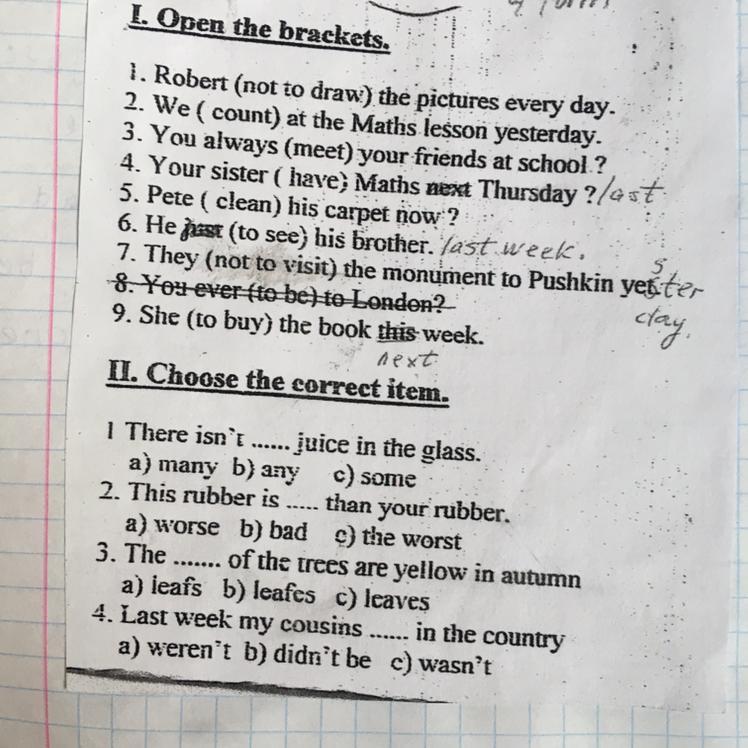 I. Open the brackets.
1. Robert (not to draw) the pictures every day.
2. We ( count) at the Maths lesson yesterday.
3. You always (meet) your friends at school ?
4. Your sister ( have) Maths next Thursday ?/last
5. Pete ( clean) his carpet now ?
6. He just (to see) his brother. last week.
7. They (not to visit) the monument to Pushkin yester
day.
8. You ever (to be) to London?
9. She (to buy) the book this week.
next
II. Choose the correct item.
1 There isn't ...... juice in the glass.
a) many b) any c) some
2. This rubber is ..... than your rubber.
a) worse b) bad c) the worst
3. The ....... of the trees are yellow in autumn
a) leafs b) leafes c) leaves
4. Last week my cousins ...... in the country
a) weren't b) didn't be c) wasn't